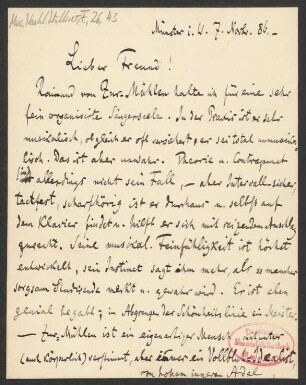 Mus. Nachl. Stelter, F., 26, 43
Münster i. W. 7. Novbr. 86. –
Lieber Freund!
Raimund von Zur-Mühlen halte ich für eine sehr
fein organisirte Sängerseele. In der Praxis ist er sehr
musikalisch, obgleich er oft versichert, er sei total unmusika-
lisch. Das ist aber unwahr. Theorie u. Contrapunct
sind allerdings nicht sein Fall, – aber Intervall-sicher
tactfest, scharfhörig ist er durchaus u. selbst auf
dem Klavier findet u. hilft er sich mit reizendem Anschlag
zurecht. Seine musikal. Feinfühligkeit ist höchst
entwickelt, sein Instinct sagt ihm mehr, als so mancher
sorgsam Studirende merkt u. gewahr wird. Er ist eben
genial begabt; in Abgrenzung der Schönheitslinie ein Meister.
– Zur-Mühlen ist ein eigenartiger Mensch, mitunter
(auch körperlich) verstimmt, aber immer ein Vollblut-Idealist
von hohem inneren Adel